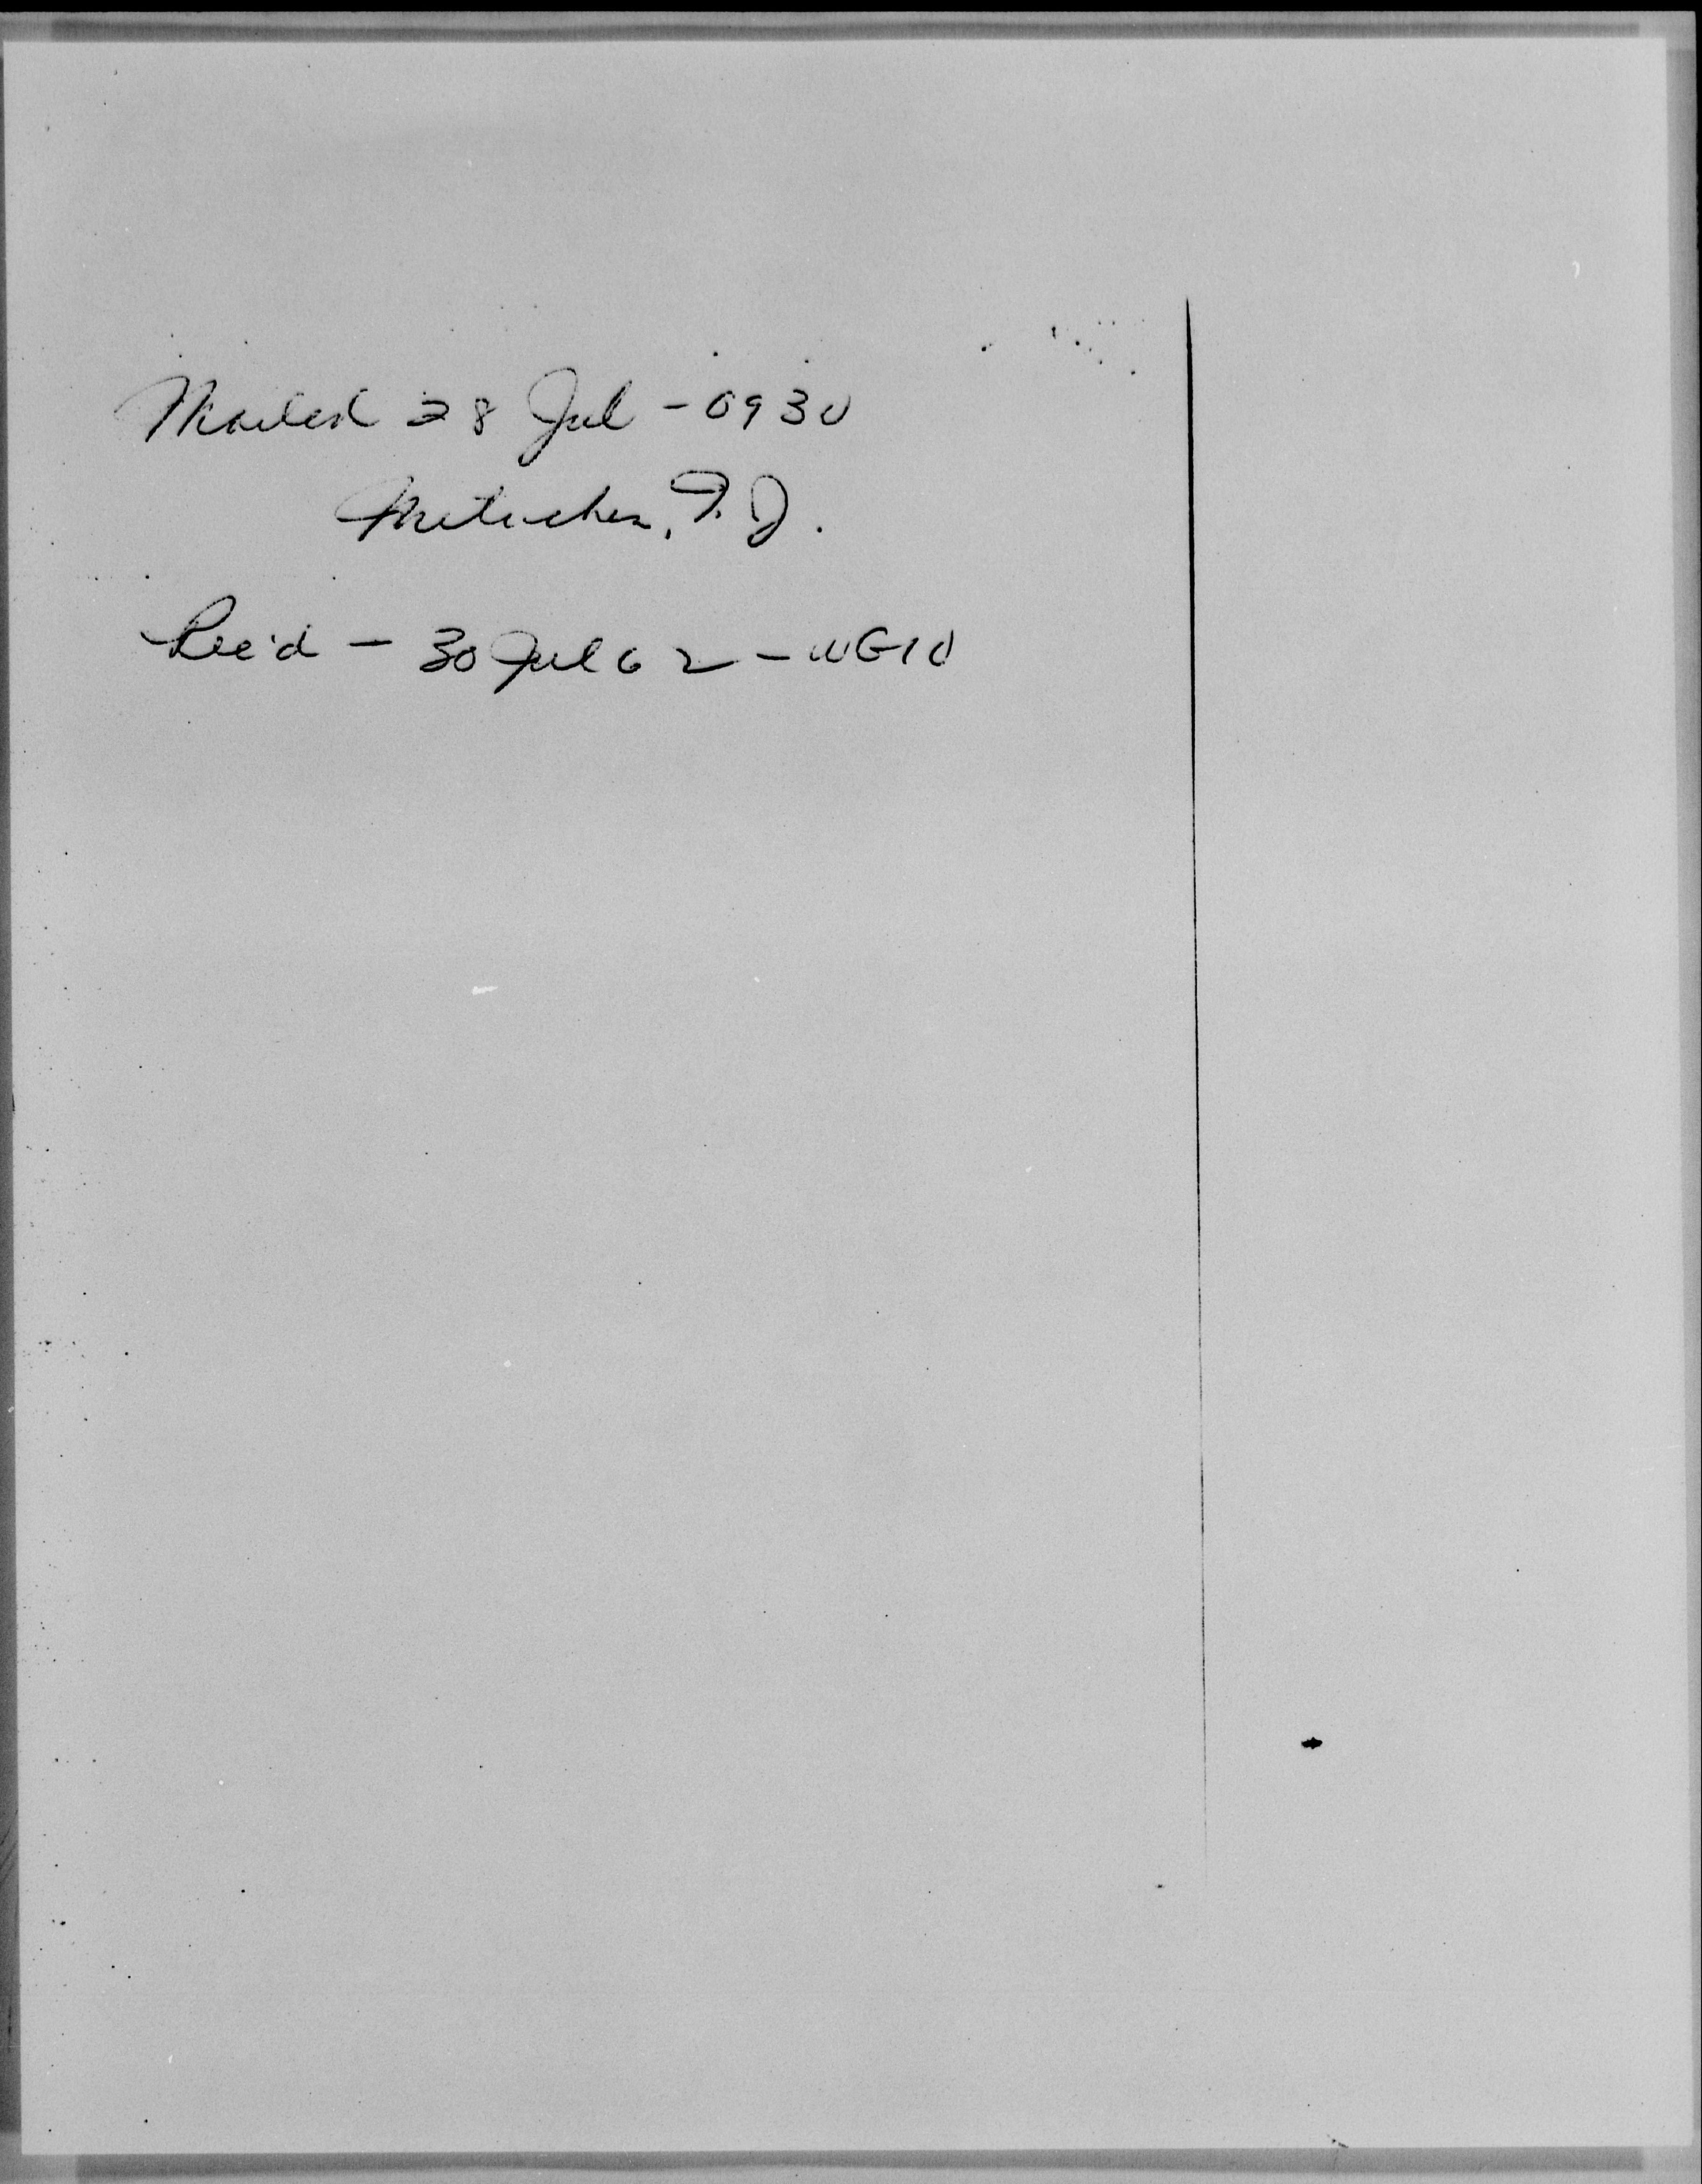 Mailed 28 Jul - 0930
Metuchen, N.J.
Rec'd - 30 Jul 62 -